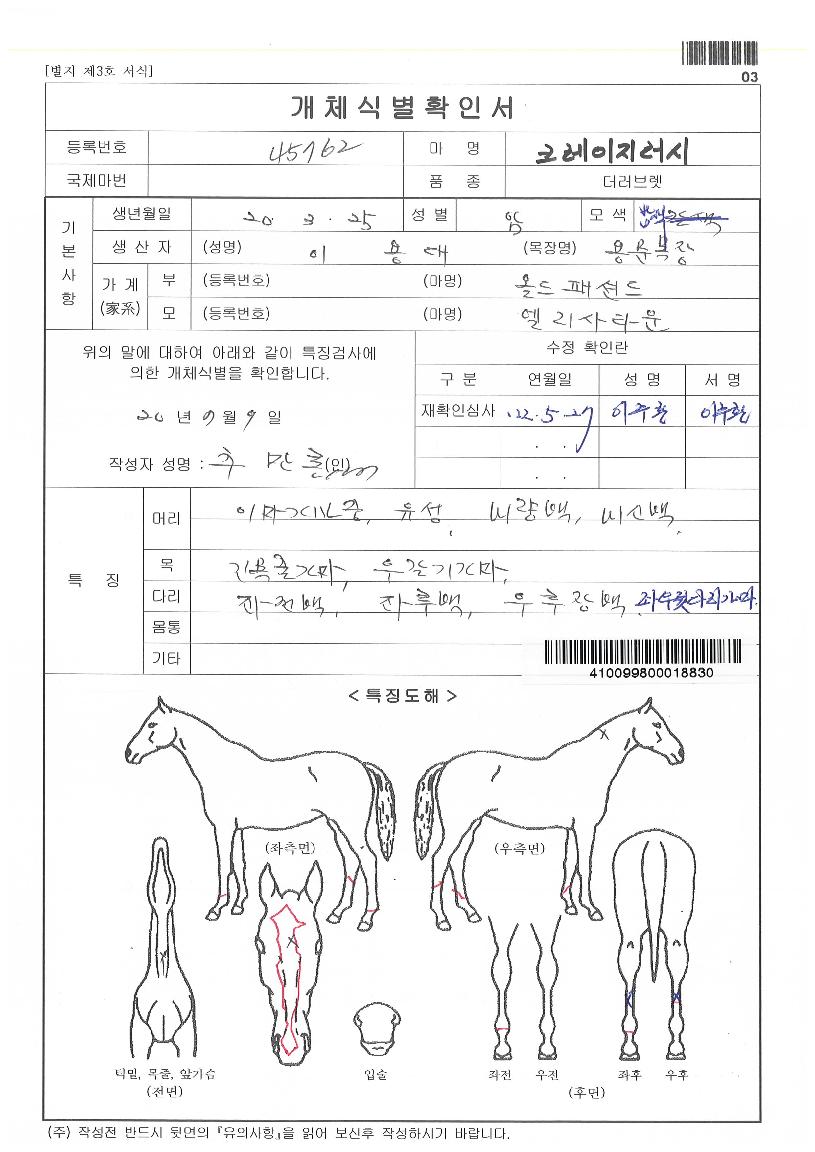 [별지 제3호 서식]
03
개체식별확인서
등록번호 45762 마 명 코레이지러시
국제마번 품 종 더러브렛
기본사항
생년월일 20. 3. 25 성별 암 모색
생 산 자 (성명) 이 용 대 (목장명) 용문목장
가 계 (家系) 부 (등록번호) (마명) 올드패션드
모 (등록번호) (마명) 엘리사타운
위의 말에 대하여 아래와 같이 특징검사에
의한 개체식별을 확인합니다.
20 년 9 월 9 일
작성자 성명 : (인)
수정 확인란
구 분 연월일 성 명 서 명
재확인심사 .22.5.27 이주환 이주환
. .
. .
특 징
머리 이마가마중, 유성, 비량백, 비신백.
목 우갈기가마.
다리 좌전백, 좌후백, 우후장백 좌우뒷다리가마.
몸통
기타
410099800018830
< 특징도해 >
(좌측면) (우측면)
턱밑, 목줄, 앞가슴
(전면)
입술
좌전 우전 좌후 우후
(후면)
(주) 작성전 반드시 뒷면의 『유의사항』을 읽어 보신후 작성하시기 바랍니다.